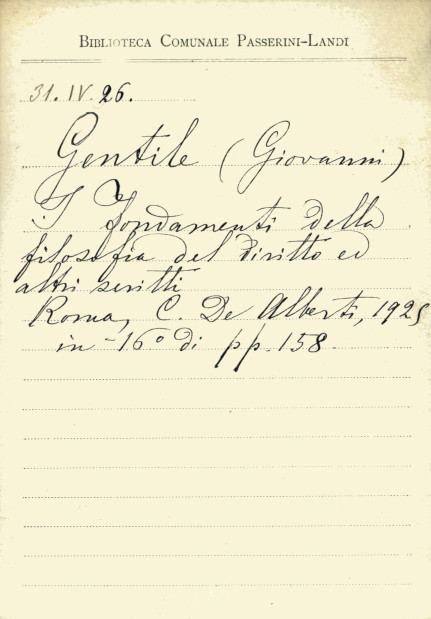 BIBLIOTECA COMUNALE PASSERINI-LANDI
31. IV. 26.
Gentile (Giovanni)
I Fondamenti della
filosofia del diritto ed
altri scritti
Roma, C. De Alberti, 1925
in-16° di pp. 158